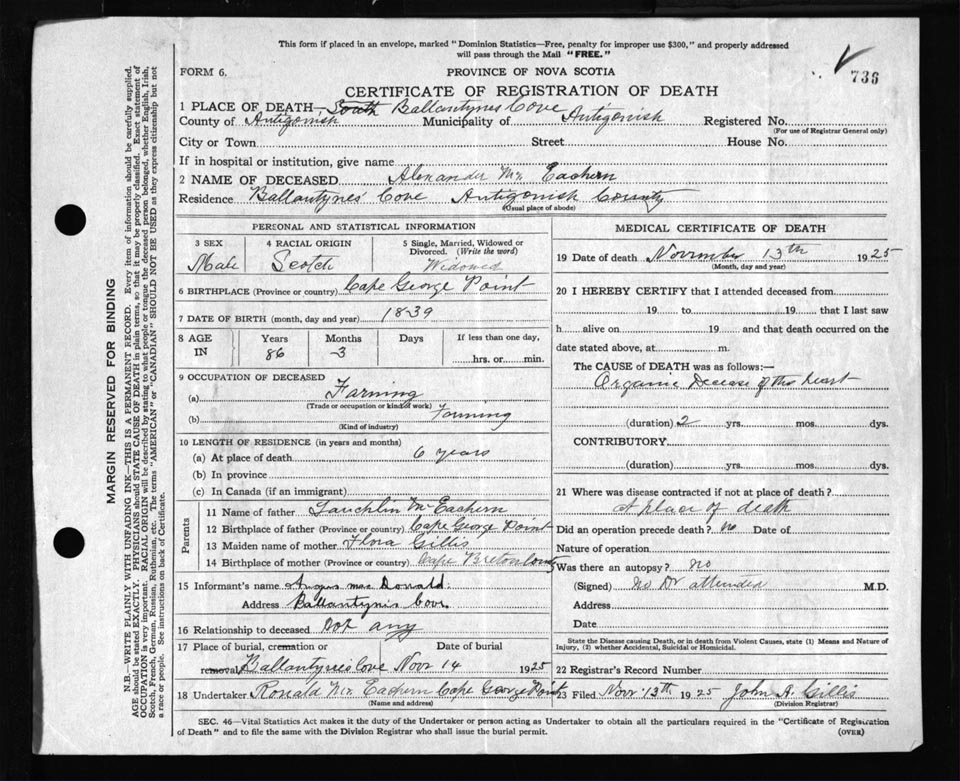 This form if placed in an envelope, marked "Dominion Statistics—Free, penalty for improper use $300," and properly addressed
will pass through the Mail "FREE."
736
FORM 6.
PROVINCE OF NOVA SCOTIA
CERTIFICATE OF REGISTRATION OF DEATH
1 PLACE OF DEATH— South Ballantynes Cove
County of Antigonish Municipality of Antigonish Registered No.
(For use of Registrar General only)
City or Town Street House No.
If in hospital or institution, give name
2 NAME OF DECEASED Alexander Mc Eachern
Residence Ballantynes' Cove Antigonish County
(Usual place of abode)
PERSONAL AND STATISTICAL INFORMATION
3 SEX 4 RACIAL ORIGIN 5 Single, Married, Widowed or
Divorced. (Write the word)
Male Scotch Widowed
6 BIRTHPLACE (Province or country) Cape George Point
7 DATE OF BIRTH (month, day and year) 1839
8 AGE Years Months Days If less than one day,
IN 86 -3 hrs. or min.
9 OCCUPATION OF DECEASED
(a) Farming
(Trade or occupation or kind of work)
(b) Farming
(Kind of industry)
10 LENGTH OF RESIDENCE (in years and months)
(a) At place of death 6 years
(b) In province
(c) In Canada (if an immigrant)
Parents
11 Name of father Lauchlin McEachern
12 Birthplace of father (Province or country) Cape George Point
13 Maiden name of mother Flora Gillis
14 Birthplace of mother (Province or country) Cape Breton County
15 Informant's name Angus mac Donald
Address Ballantynis Cove
16 Relationship to deceased Not any
17 Place of burial, cremation or Date of burial
removal Ballantynes Cove Novr 14 1925
18 Undertaker Ronald Mc Eachern Cape George Point
(Name and address)
MEDICAL CERTIFICATE OF DEATH
19 Date of death November 13th 1925
(Month, day and year)
20 I HEREBY CERTIFY that I attended deceased from
19 to 19 that I last saw
h alive on 19 and that death occurred on the
date stated above, at m.
The CAUSE of DEATH was as follows:—
Organic Decease of the heart
(duration) 2 yrs. mos. dys.
CONTRIBUTORY
(duration) yrs. mos. dys.
21 Where was disease contracted if not at place of death?
At place of death
Did an operation precede death? no Date of
Nature of operation
Was there an autopsy? no
(Signed) no Dr attended M.D.
Address
Date
State the Disease causing Death, or in death from Violent Causes, state (1) Means and Nature of
Injury, (2) whether Accidental, Suicidal or Homicidal.
22 Registrar's Record Number
23 Filed Novr 13th 1925 John A. Gillis
(Division Registrar)
SEC. 46—Vital Statistics Act makes it the duty of the Undertaker or person acting as Undertaker to obtain all the particulars required in the "Certificate of Registration
of Death" and to file the same with the Division Registrar who shall issue the burial permit.
(OVER)
MARGIN RESERVED FOR BINDING
N.B.—WRITE PLAINLY WITH UNFADING INK—THIS IS A PERMANENT RECORD. Every item of information should be carefully supplied.
AGE should be stated EXACTLY. PHYSICIANS should STATE CAUSE OF DEATH in plain terms, so that it may be properly classified. Exact statement of
OCCUPATION is very important. RACIAL ORIGIN will be described by stating to what people or tongue the deceased person belonged, whether English, Irish,
Scotch, French, German, Russian, Ruthenian, etc. The terms "AMERICAN" or "CANADIAN" SHOULD NOT BE USED as they express citizenship but not
a race or people. See instructions on back of Certificate.